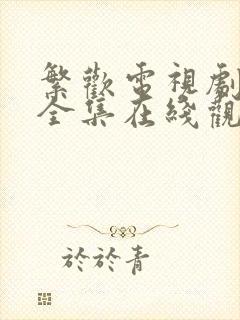 繁歡電視劇
全集在綫觀
於於青